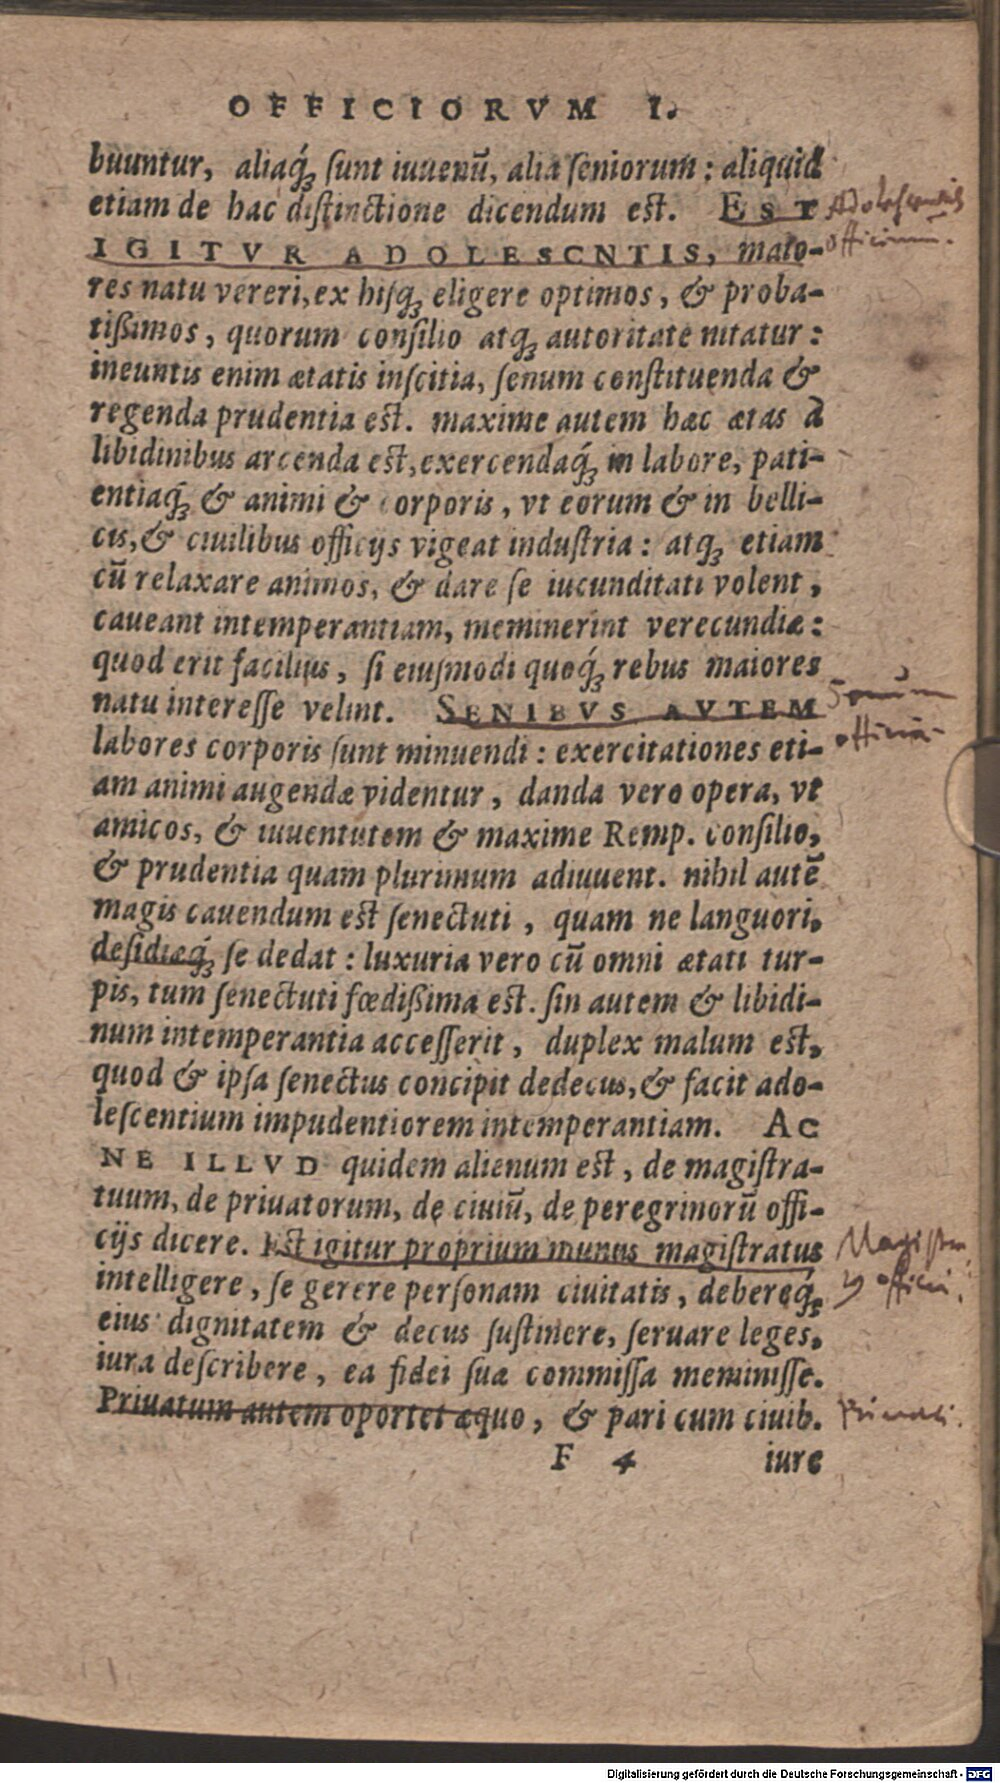 OFFICIORVM I.
buuntur, aliaq́ꝫ ſunt iuuenū, alia ſeniorum: aliquid
etiam de hac diſtinctione dicendum eſt. EST
IGITVR ADOLESCNTIS, maio-
res natu vereri, ex hiſqꝫ eligere optimos, & proba-
tißimos, quorum conſilio atqꝫ autoritate nitatur:
ineuntis enim ætatis inſcitia, ſenum conſtituenda &
regenda prudentia eſt. maxime autem hæc ætas à
libidinibus arcenda eſt, exercendaq́ꝫ in labore, pati-
entiaq́ꝫ & animi & corporis, vt eorum & in belli-
cis, & ciuilibus officijs vigeat induſtria: atqꝫ etiam
cū relaxare animos, & dare ſe iucunditati volent,
caueant intemperantiam, meminerint verecundiæ:
quod erit facilius, ſi eiuſmodi quoq́ꝫ rebus maiores
natu intereſſe velint. SENIBVS AVTEM
labores corporis ſunt minuendi: exercitationes eti-
am animi augendæ videntur, danda vero opera, vt
amicos, & iuuentutem & maxime Remp. conſilio,
& prudentia quam plurimum adiuuent. nihil autē
magis cauendum eſt ſenectuti, quam ne languori,
deſidiæq́ꝫ ſe dedat: luxuria vero cū omni ætati tur-
pis, tum ſenectuti fœdißima eſt. ſin autem & libidi-
num intemperantia acceſſerit, duplex malum eſt,
quod & ipſa ſenectus concipit dedecus, & facit ado-
leſcentium impudentiorem intemperantiam. AC
NE ILLVD quidem alienum eſt, de magiſtra-
tuum, de priuatorum, de ciuiū, de peregrinorū offi-
cijs dicere. Eſt igitur proprium munus magiſtratus
intelligere, ſe gerere perſonam ciuitatis, debereq́ꝫ
eius dignitatem & decus ſuſtinere, ſeruare leges,
iura deſcribere, ea fidei ſuæ commiſſa meminiſſe.
Priuatum autem oportet æquo, & pari cum ciuib.
F 4 iure
officium.
Senum
officia
Priuati.
Digitalisierung gefördert durch die Deutsche Forschungsgemeinschaft - DFG